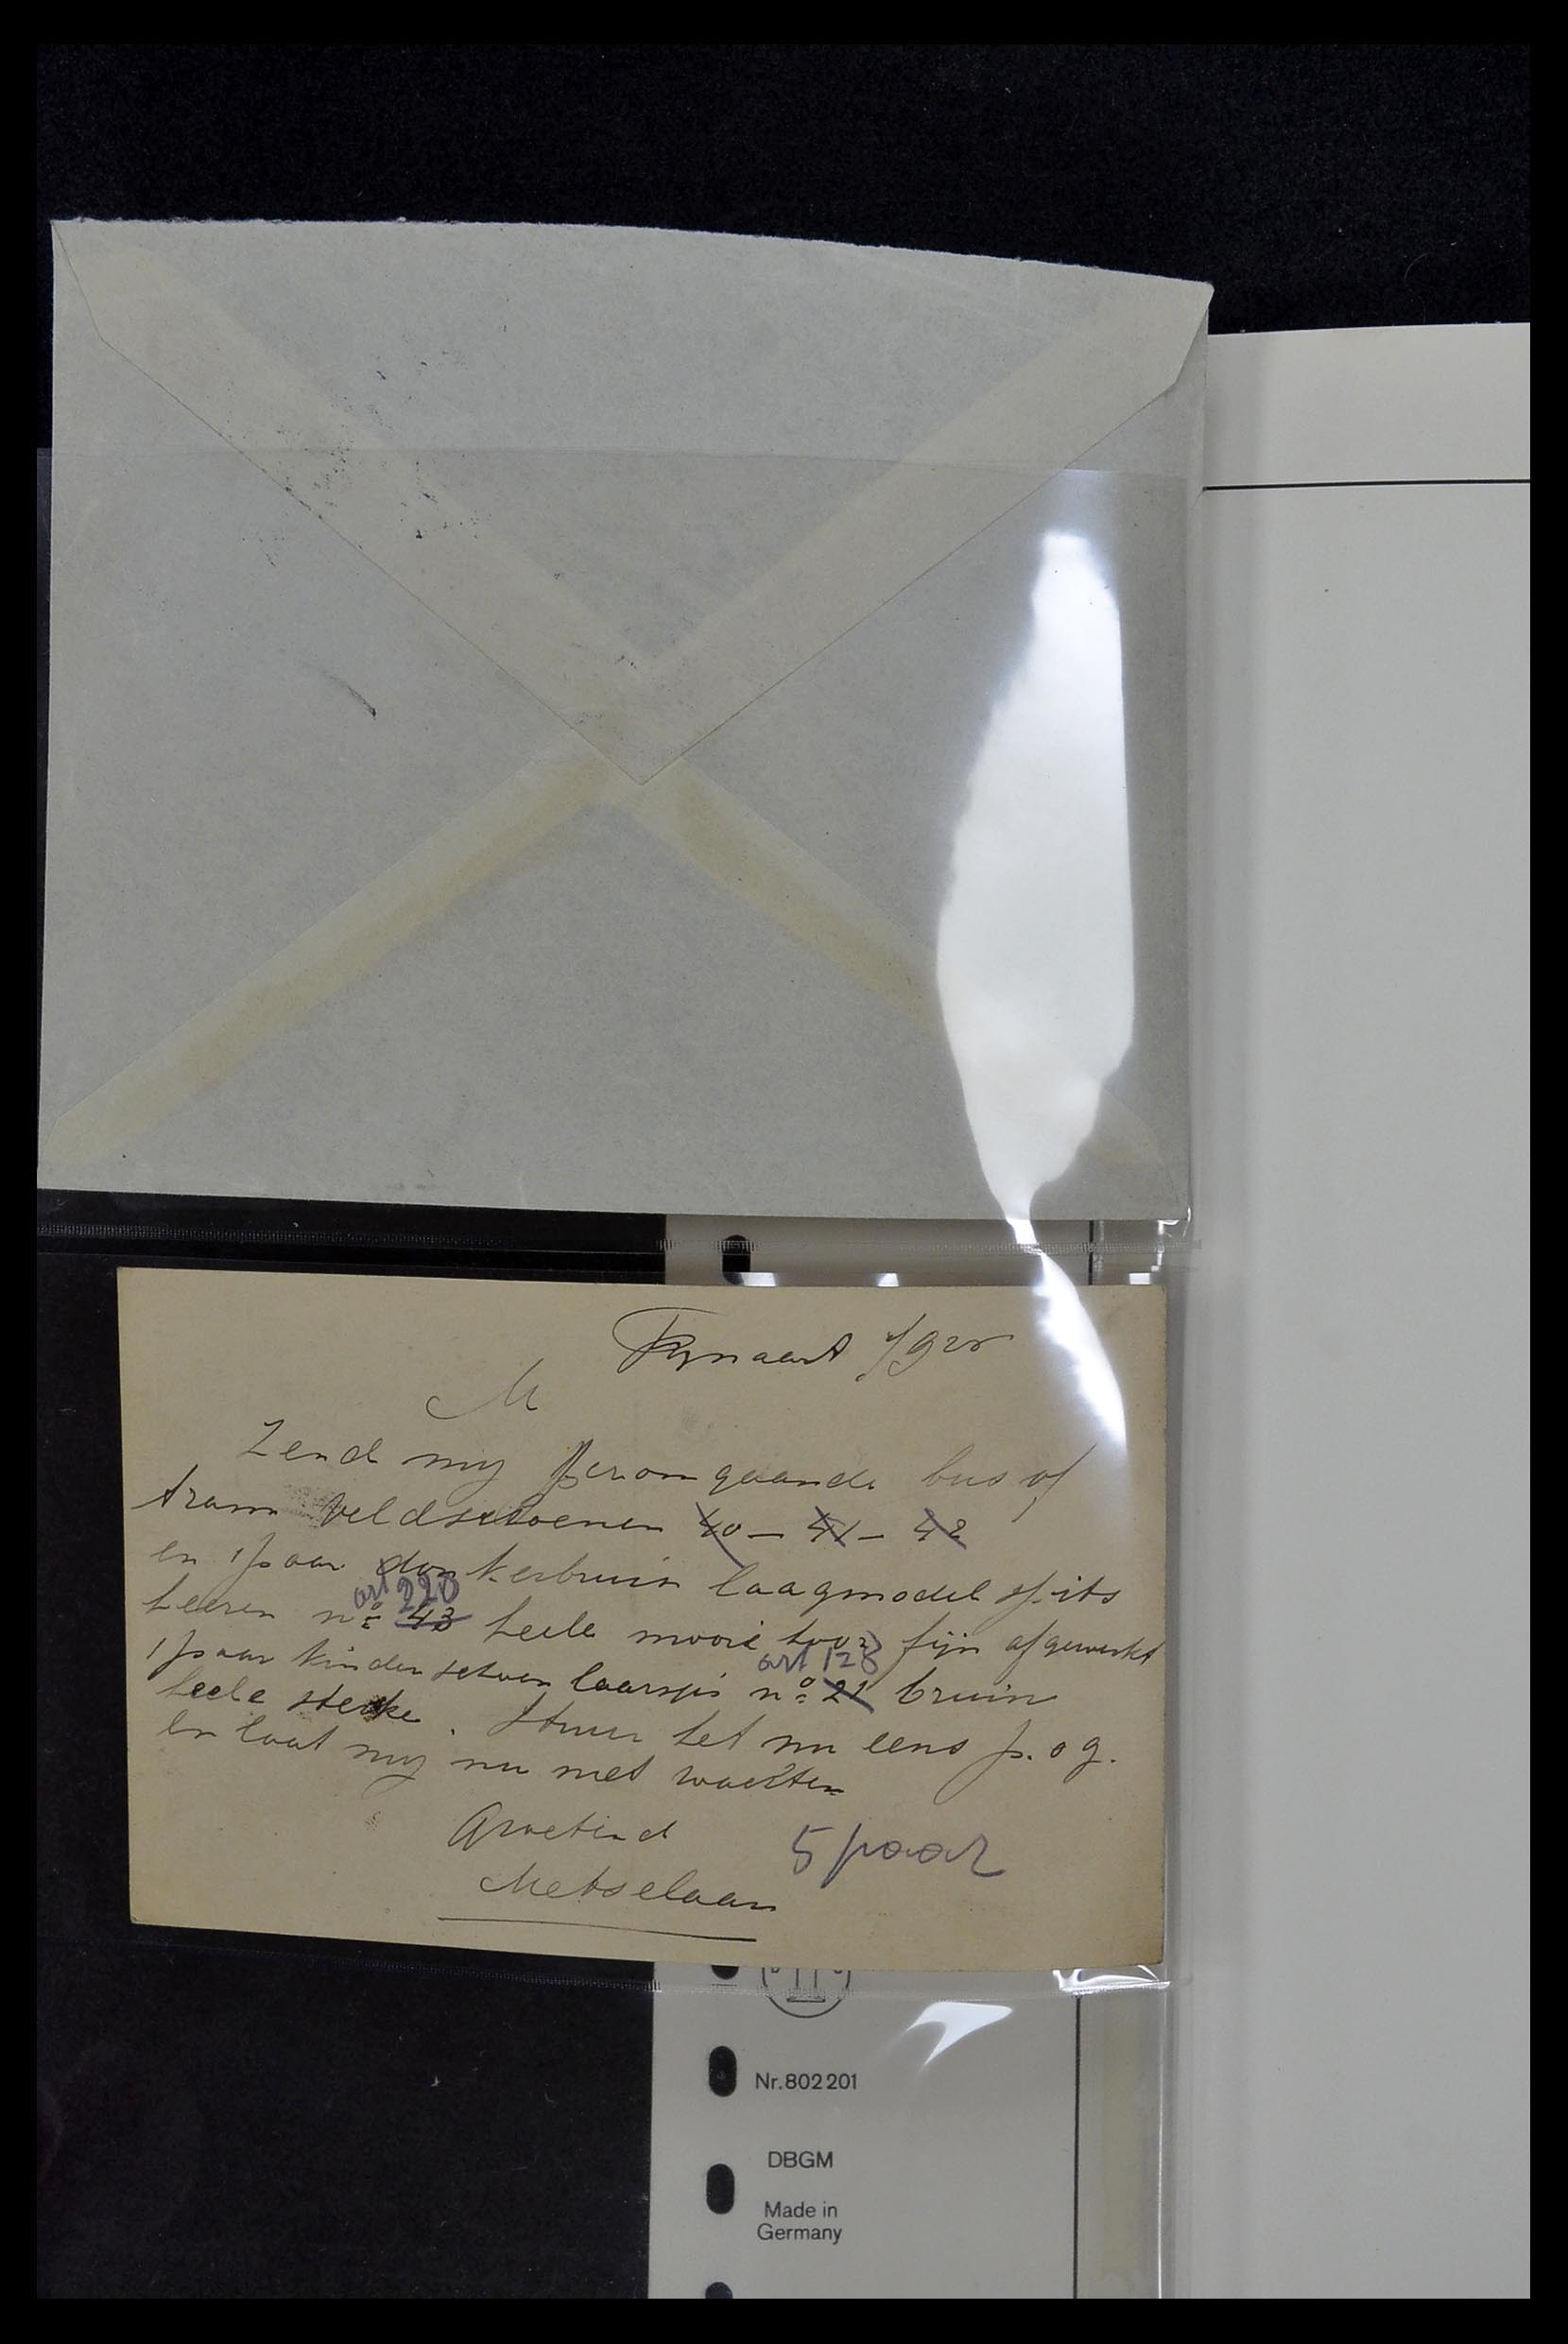 Fynaart 1/9 25
M
Zend my per omgaande bus of
tram Veldschoenen 40 – 41 – 42
en 1 paar donkerbruin laagmodel spits
art 220
heeren nº 43 heele mooie fijn afgewerkt
art 128
1 paar kinder schoen laarsjes nº 21 bruin
heele sterke. Stuur het nu eens p. o g.
En laat my nu niet wachten
Groetend
5 paar
Metselaar
Nr. 802 201
DBGM
Made in
Germany